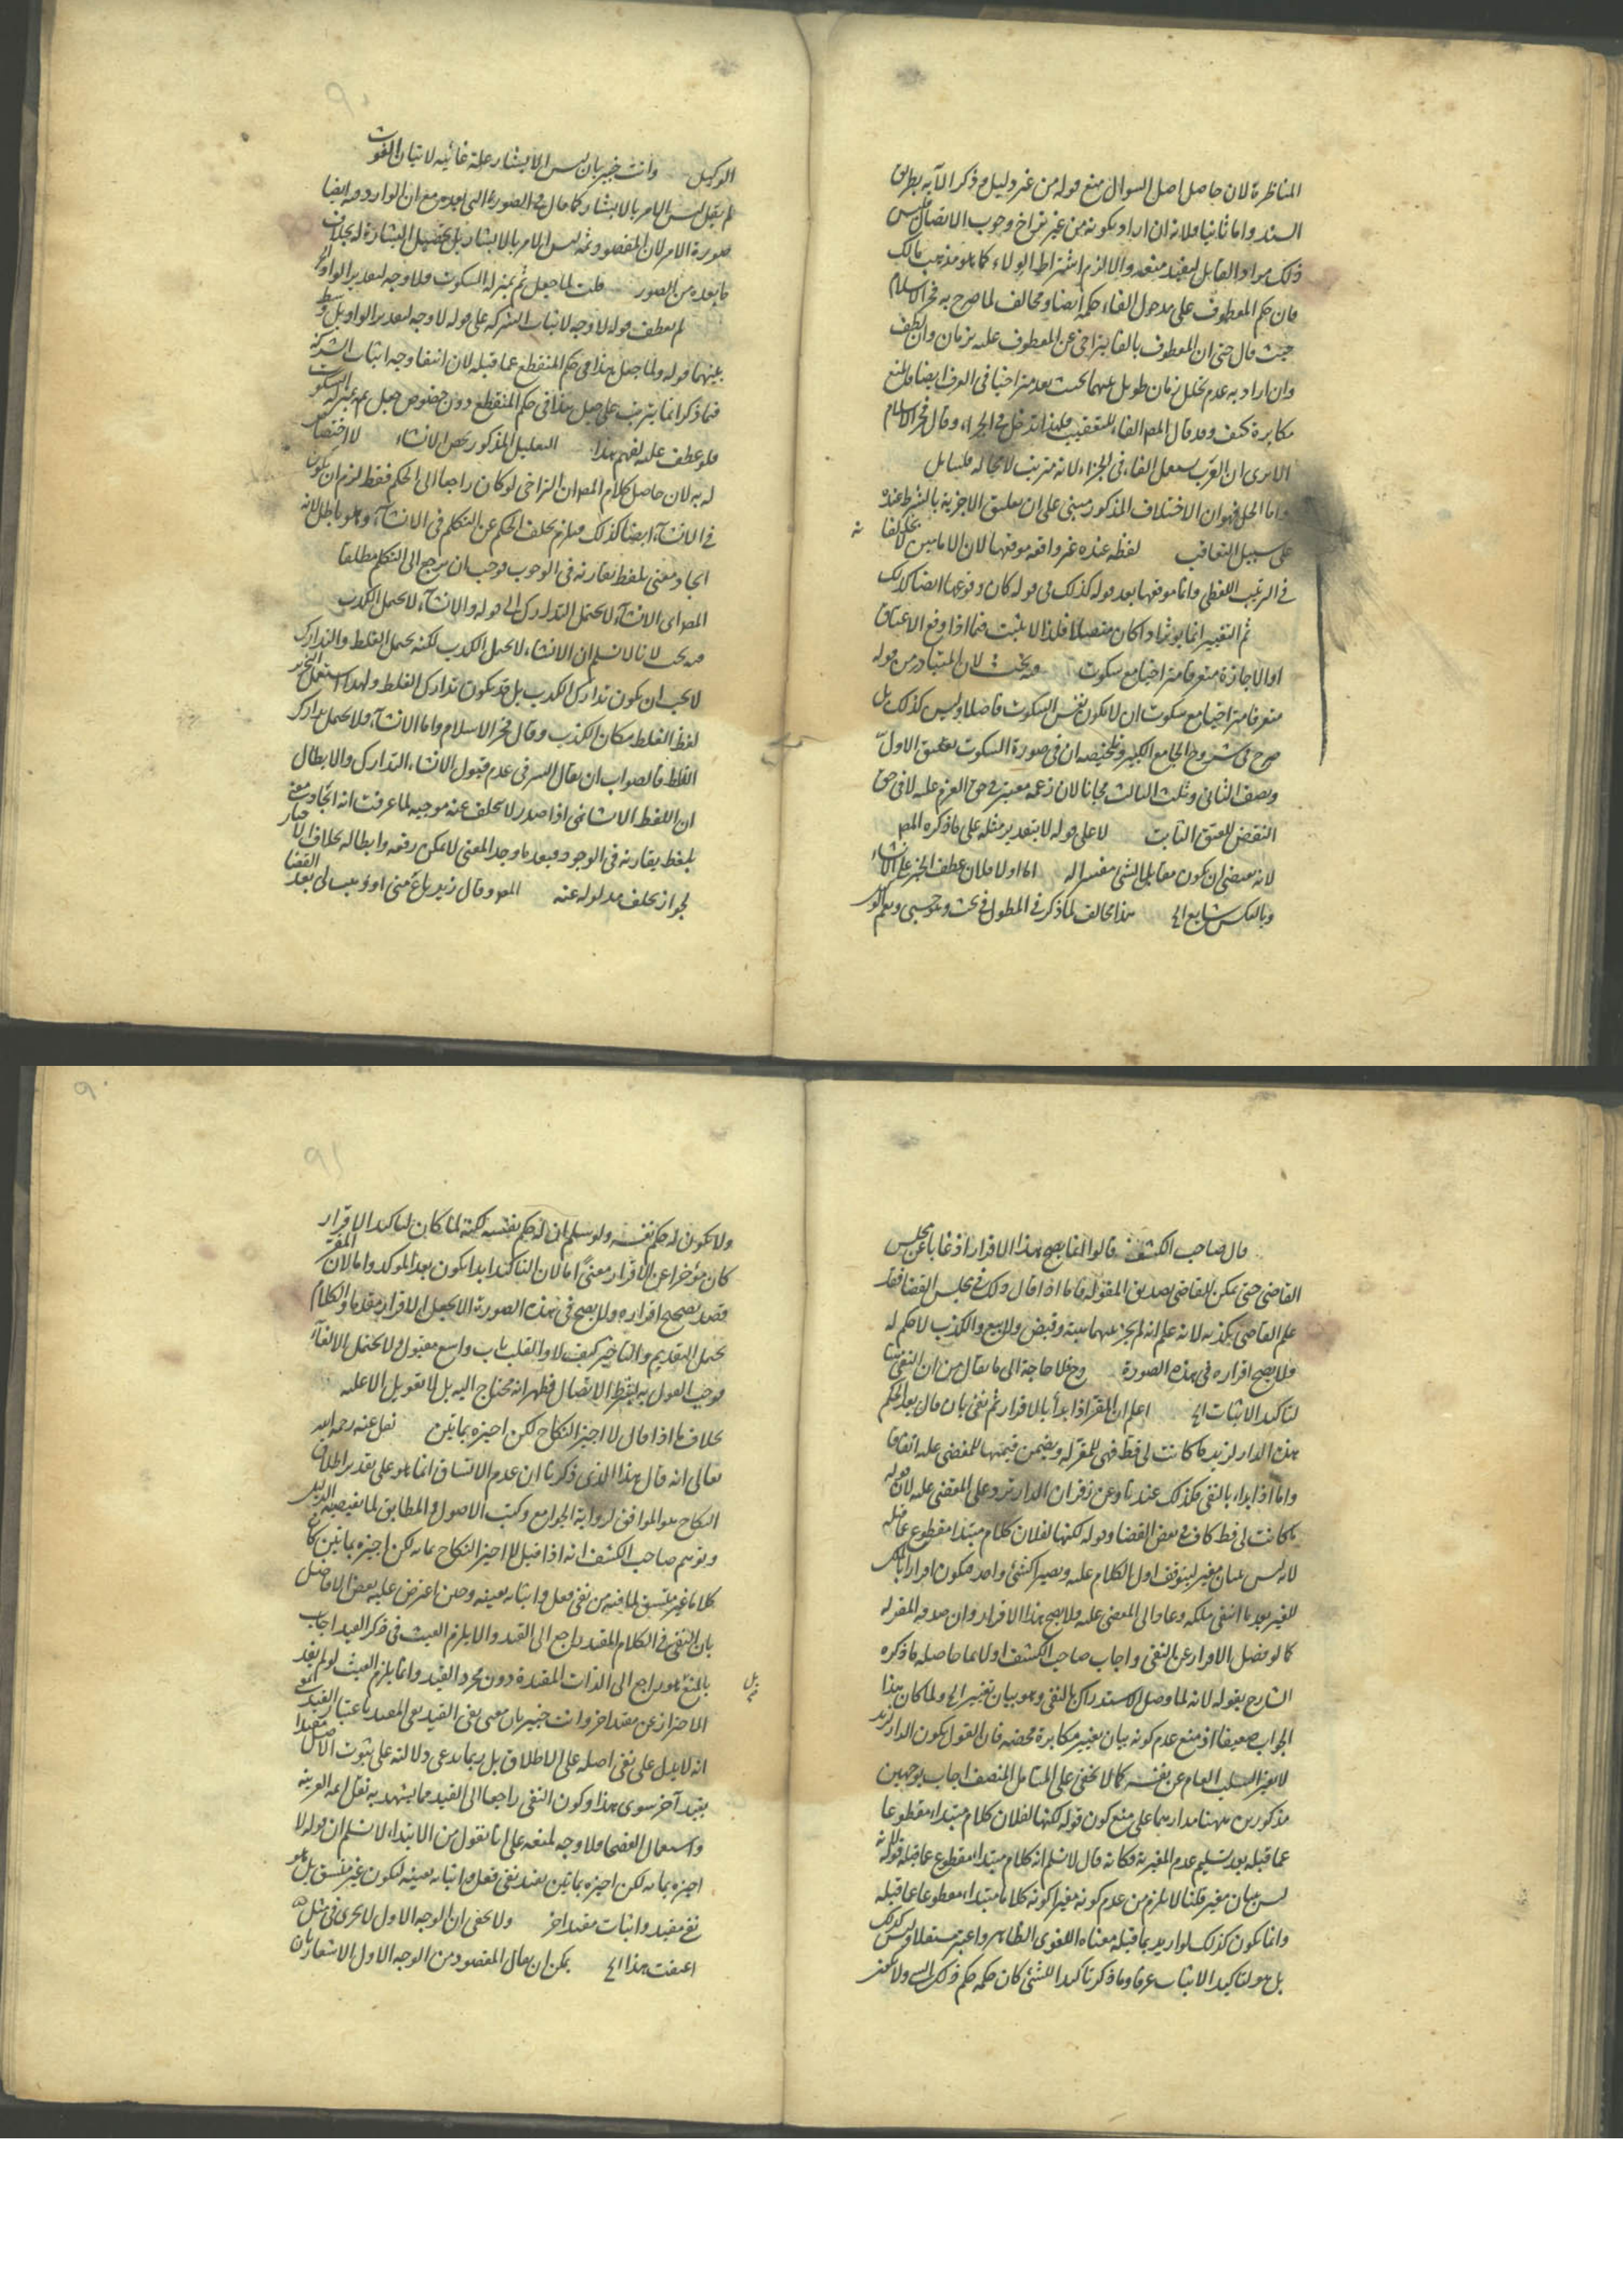 المناظرة لان حاصل اصل السوال منع قوله من غير دليل وذكر الآية بطريق
السند واما ثانيا فلانه ان اراد بكونه من غير تراخ وجوب الاتصال فليس
ذلك مراد القايل ليفيد منعه والا لزم اشتراط الولاء كما هو مذهب مالك
فان حكم المعطوف على مدخول الفاء حكمه ايضا ومخالف لما صرح به فخر الاسلام
حيث قال حتى ان المعطوف بالفا يتراخى عن المعطوف عليه بزمان وان لطف
وان اراد به عدم تخلل زمان طويل بينهما بحيث يعد متراخيا في العرف ايضا فالمنع
مكابرة كيف وقد قال المص الفاء للتعقيب فلهذا تدخل في الجزاء وقال فخر الاسلام
الا يرى ان العرب تستعمل الفاء في الجزاء لانه مترتب لا محالة فليتامل
واما الحل فهو ان الاختلاف المذكور مبني على ان تعليق الاجزية بالشرط عنده
على سبيل التعاقب لفظه عنده غير واقعة موقعها لان الامامين لا يخالفانه
في الترتيب اللفظي وانما موقعها بعد قوله كذلك في قوله كان وقوعها ايضا كذلك
ثم التغيير انما يوثر اذا كان متصلا فلذا لا يثبت فيما اذا وقع الاعتاق
او الاجازة متفرقا متراخيا مع سكوت وفيه بحث لان المتبادر من قوله
متفرقا متراخيا مع سكوت ان لا يكون نفس السكوت فاصلا وليس كذلك بل
صرح في شروح الجامع الكبير وتلخيصه ان في صورة السكوت يعتق الاول
ونصف الثاني وثلث الثالث مجانا لان زعمه معتبر في حق الغرم عليه لا في حق
النقض للعتق الثابت لا على قوله لا بتقدير مثله على ما ذكره المص
لانه يقتضي ان يكون مقابل الشئ مفسرا له اما اولا فلان عطف الخبر على الانشاء
وبالعكس شايع الخ هذا مخالف لما ذكر في المطول في بحث وهو حسبي ونعم الوكيل
الوكيل وانت خبير بان ليس الابشار علة غائية لاتيان الغوث
لم يقل ليس الامر بالابشار كما قال في الصورة التي بعده مع ان الوارد فيه ايضا
صورة الامر لان المقصود ثمه ليس الامر بالابشار بل تحصيل البشارة له بخلاف
ما بعده من الصور قلت لما جعل ثم بمنزلة السكوت فلا وجه لتقدير الواو الخ
لم يعطف قوله لا وجه لاثبات الشركة على قوله لا وجه لتقدير الواو بل وسط
بينهما قوله ولما جعل هذا في حكم المنقطع عما قبله لان انتفاء وجه اثبات الشركة
فيما ذكر انما يترتب على جعل هذا في حكم المنقطع دون خصوص جعل ثم بمنزلة السكوت
فلو عطف عليه لفهم هذا التعليل المذكور يخص الانشاء لا اختصاص
له به لان حاصل كلام المص ان التراخي لو كان راجعا الى الحكم فقط لزم ان يكون
في الانشاء ايضا كذلك فيلزم تخلف الحكم عن التكلم في الانشاء وهو باطل لانه
ايجاد معنى بلفظ يقارنه في الوجوب فوجب ان يرجع الى التكلم مطلقا
المص اي الانشاء لا يحتمل التدارك الى قوله والانشاء لا يحتمل الكذب
فيه بحث لانا لا نسلم ان الانشاء لا يحتمل الكذب لكنه يحتمل الغلط والتدارك
لا يجب ان يكون تدارك الكذب بل قد يكون تدارك الغلط ولهذا استعمل
لفظ الغلط مكان الكذب وقال فخر الاسلام واما الانشاء فلا يحتمل تدارك
الغلط فالصواب ان يقال السر في عدم قبول الانشاء التدارك والابطال
ان اللفظ الانشائي اذا صدر لا يتخلف عنه موجبه لما عرفت انه ايجاد معنى
بلفظ يقارنه في الوجود وبعد ما وجد المعنى لا يمكن رفعه وابطاله بخلاف الاخبار
لجواز تخلف مدلوله عنه المص وقال زيد باع مني او وهب لي بعد القضا
قال صاحب الكشف قالوا انما يصح هذا الاقرار اذ غابا عن مجلس
القاضي حتى يمكن للقاضي تصديق المقر له فاما اذا قال ذلك في مجلس القضا فقد
علم القاضي بكذبه لانه علم انه لم يجر بينهما هبة وقبض ولا بيع والكذب لا حكم له
ولا يصح اقراره في هذه الصورة وح فلا حاجة الى ما يقال من ان النفي هنا
لتاكيد الاثبات الخ اعلم ان المقر اذا بدأ بالاقرار ثم نفى بان قال بعد الحكم
هذه الدار لزيد ما كانت لي قط فهي للمقر له ويضمن قيمتها للمقضي عليه اتفاقا
واما اذا بداء بالنفي فكذلك عندنا وعن زفر ان الدار ترد على المقضي عليه لان قوله
ما كانت لي قط كاف في نقض القضا وقوله لكنها لفلان كلام مبتدا مقطوع عما قبله
لانه ليس ببيان مغير ليتوقف اول الكلام عليه ويصيرا كشئ واحد فيكون اقرارا بملك
للغير بعد ما انتفى ملكه وعاد الى المقضي عليه ولا يصح هذا الاقرار وان صدقه المقر له
كما لو فصل الاقرار عن النفي واجاب صاحب الكشف اولا بما حاصله ما ذكره
الشارح بقوله لانه لما وصل الاستدراك بالنفي وهو بيان تغيير الخ ولما كان هذا
الجواب ضعيفا اذ منع عدم كونه بيان تغيير مكابرة محضة فان القول بكون الدار لزيد
لا يغير السلب العام عن نفسه كما لا يخفى على المتامل المنصف اجاب بوجهين
مذكورين ههنا مدارهما على منع كون قوله لكنها لفلان كلام مبتداء مقطوعا
عما قبله بعد تسليم عدم المغيرية فكانه قال لا نسلم انه كلام مبتداء مقطوع عما قبله قوله لانه
ليس ببيان مغير قلنا لا يلزم من عدم كونه مغيرا كونه كلاما مبتداء مقطوعا عما قبله
وانما يكون كذلك لو اريد بما قبله معناه اللغوي الظاهر واعتبر مستقلا وليس كذلك
بل هو لتاكيد الاثبات عرفا وما ذكر تاكيدا للشئ كان حكمه حكم ذلك الشئ ولا يكون
ولا يكون له حكم نفسه ولو سلم ان له حكم نفسه لكنه لما كان لتاكيد الاقرار
كان مؤخرا عن الاقرار معنى اما لان التاكيد ابدا يكون بعد الموكد واما لان المقر
قصد تصحيح اقراره ولا يصح في هذه الصورة الا بجعل الاقرار مقدما والكلام
يحتمل التقديم والتاخير كيف لا والقلب باب واسع مقبول ولا يحتمل الالغاء
فوجب القول به بشرط الاتصال فظهر انه محتاج اليه بل لا تعويل الا عليه
بخلاف ما اذا قال لا اجيز النكاح لكن اجيزه بمايتين نقل عنه رحمه الله
تعالى انه قال هذا الذي ذكرنا ان عدم الاتساق انما هو على تقدير اطلاق
النكاح هو الموافق لرواية الجوامع وكتب الاصول والمطابق لما يقتضيه الدليل
وتوهم صاحب الكشف انه اذا قيل لا اجيز النكاح بمائة لكن اجيزه بمائتين كان
كلاما غير متسق لما فيه من نفي فعل واثباته بعينه وحين اعترض عليه بعض الافاضل
بان النفي في الكلام المقيد راجع الى القيد والا يلزم العبث في ذكر القيد اجاب
بالمنع بل هو راجع الى الذات المقيدة دون مجرد القيد وانما يلزم العبث لو لم يفد
الاحتراز عن مقيد اخر وانت خبير بان معنى نفي القيد نفي المقيد باعتبار القيد
انه لا يدل على نفي اصله على الاطلاق بل ربما يدعى دلالته على ثبوت الاصل مقيدا
بقيد آخر سوى هذا وكون النفي راجعا الى القيد مما يشهد به نقل ائمة العربية
واستعمال الفصحا ولا وجه لمنعه على انا نقول من الابتداء لا نسلم ان قوله لا
اجيزه بمائة لكن اجيزه بمائتين يفيد نفي فعل واثباته بعينه ليكون غير متسق بل هو
نفي مقيد واثبات مقيد اخر ولا يخفى ان الوجه الاول لا يجري في مثل
اعتقت هذا الخ يمكن ان يقال المقصود من الوجه الاول الاشعار بان